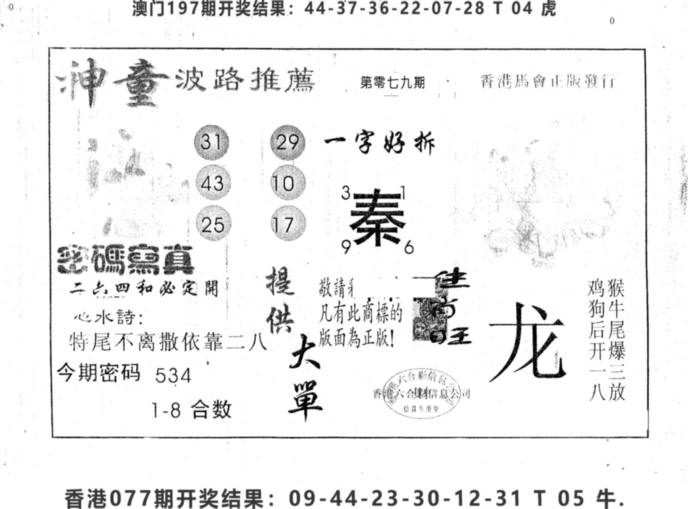 澳门197期开奖结果：44-37-36-22-07-28 T 04 虎
神童 波路推薦 第零七九期 香港馬會正版發行
31 29 一字好拆
43 10
25 17
3 1
秦
9 6
密碼寫真
二六四和必定開
心水詩：
特尾不离撒依靠二八
今期密码 534
1-8 合数
提供
大單
敬請
凡有此商標的
版面為正版！
龙
猴牛尾爆三放
鸡狗后开一八
香港077期开奖结果：09-44-23-30-12-31 T 05 牛.